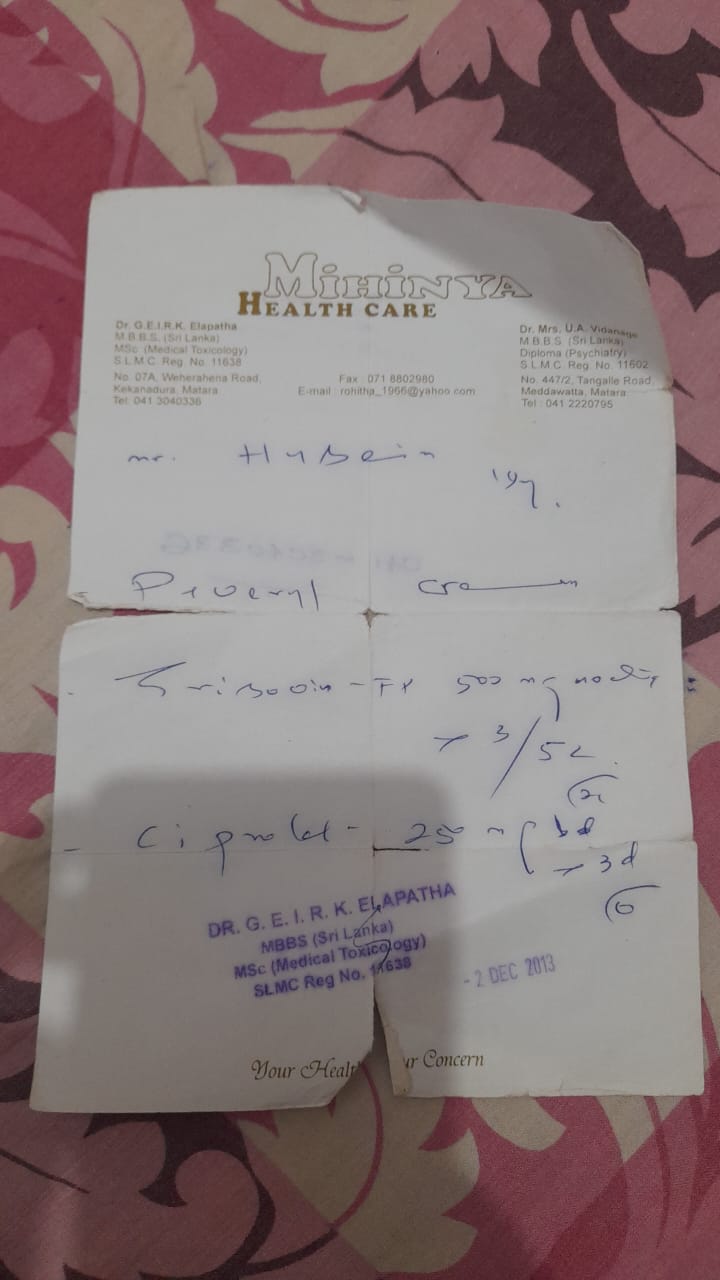 MiHiNYA
HEALTH CARE
Dr. G.E.I.R.K. Elapatha
M.B.B.S. (Sri Lanka)
MSc (Medical Toxicology)
S.L.M.C. Reg. No. 11638
No. 07A, Weherahena Road,
Kekanadura, Matara.
Tel: 041 3040336
Fax : 071 8802980
E-mail : rohitha_1966@yahoo.com
Dr. Mrs. U.A. Vidanage
M.B.B.S. (Sri Lanka)
Diploma (Psychiatry)
S.L.M.C. Reg. No. 11602
No. 447/2, Tangalle Road,
Meddawatta, Matara.
Tel : 041 2220795
mr. Husein
19y.
Pevaryl
500 mg nocte
3/52
250 mg bd
3d
DR. G. E. I. R. K. ELAPATHA
MBBS (Sri Lanka)
MSc (Medical Toxicology)
SLMC Reg No. 11638
- 2 DEC 2013
Your Healt ur Concern